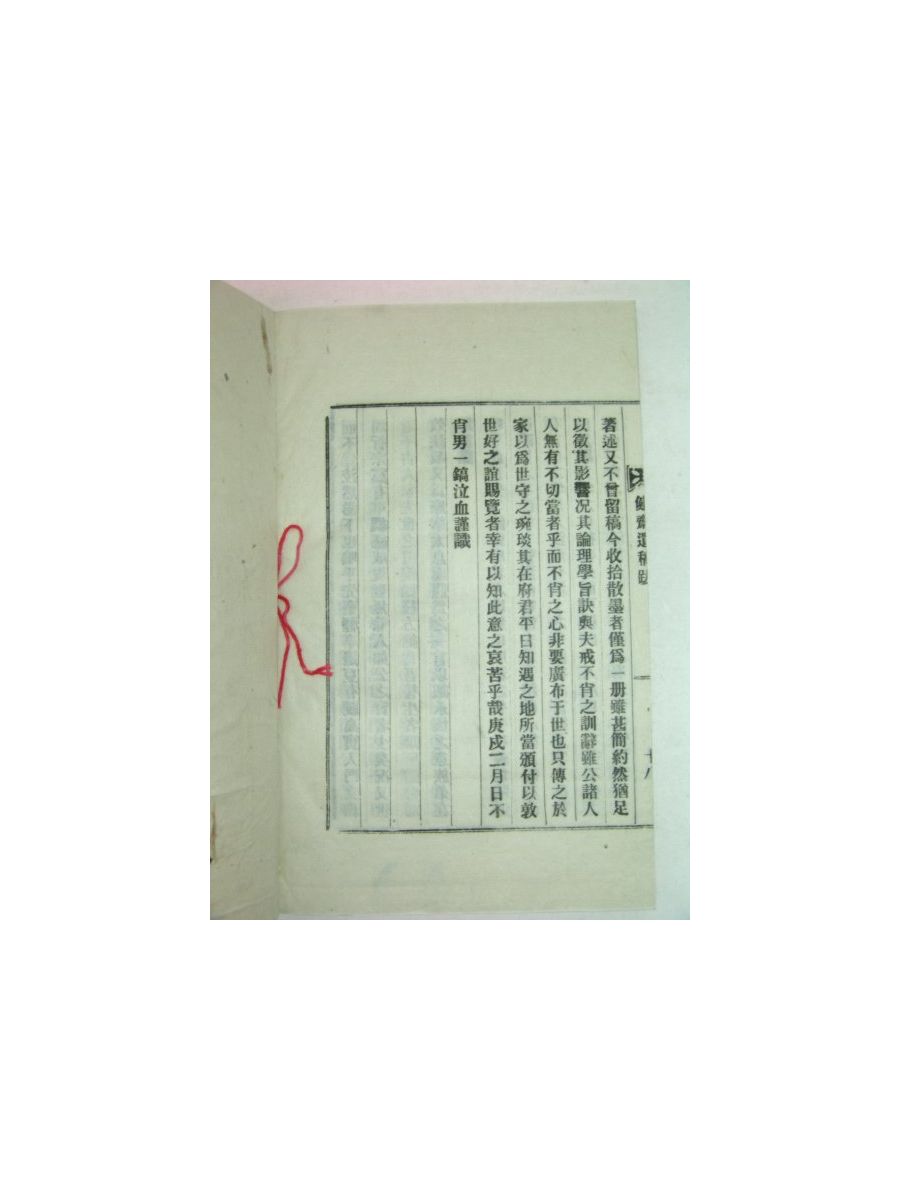 齋遺稿跋
十八
著述又不曾留稿今收拾散墨者僅爲一册雖甚簡約然猶足
以徵其影響况其論理學旨訣與夫戒不肖之訓辭雖公諸人
人無有不切當者乎而不肖之心非要廣布于世也只傳之於
家以爲世守之琬琰其在府君平日知遇之地所當頒付以敦
世好之誼賜覽者幸有以知此意之哀苦乎哉庚戌二月日不
肖男一鎬泣血謹識